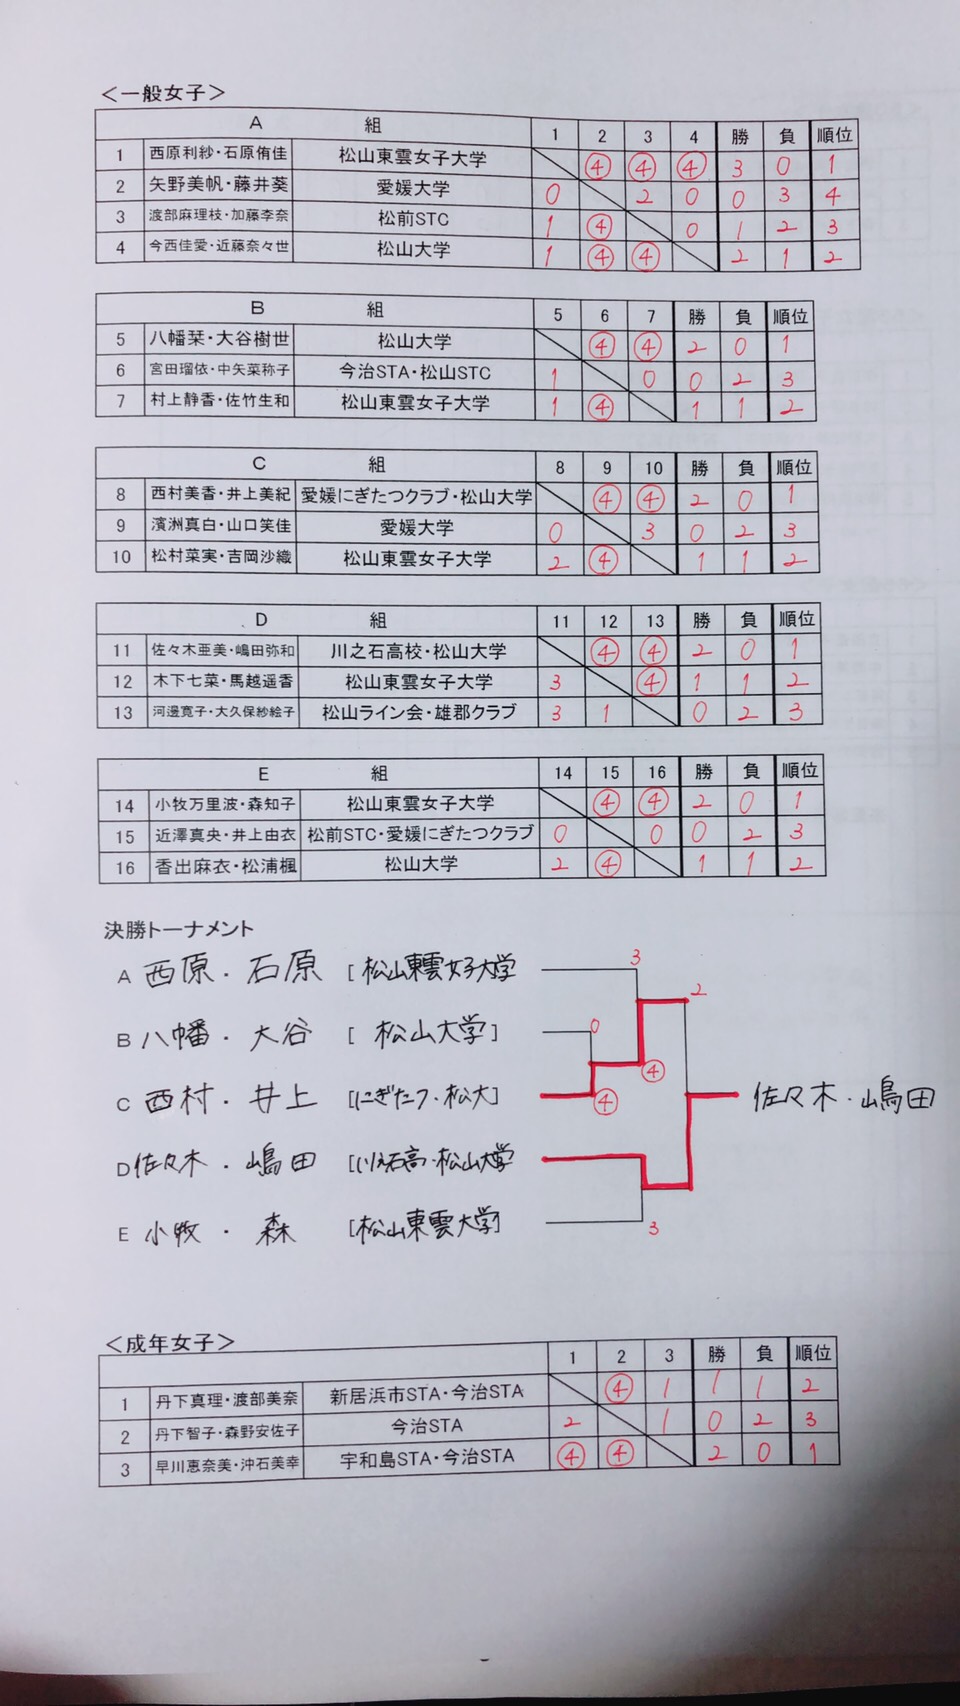 ＜一般女子＞
A 組 1 2 3 4 勝 負 順位
1 西原利紗・石原侑佳 松山東雲女子大学 ④ ④ ④ 3 0 1
2 矢野美帆・藤井葵 愛媛大学 0 2 0 0 3 4
3 渡部麻理枝・加藤李奈 松前STC 1 ④ 0 1 2 3
4 今西佳愛・近藤奈々世 松山大学 1 ④ ④ 2 1 2
B 組 5 6 7 勝 負 順位
5 八幡栞・大谷樹世 松山大学 ④ ④ 2 0 1
6 宮田瑠依・中矢菜称子 今治STA・松山STC 1 0 0 2 3
7 村上静香・佐竹生和 松山東雲女子大学 1 ④ 1 1 2
C 組 8 9 10 勝 負 順位
8 西村美香・井上美紀 愛媛にぎたつクラブ・松山大学 ④ ④ 2 0 1
9 濱洲真白・山口笑佳 愛媛大学 0 3 0 2 3
10 松村菜実・吉岡沙織 松山東雲女子大学 2 ④ 1 1 2
D 組 11 12 13 勝 負 順位
11 佐々木亜美・嶋田弥和 川之石高校・松山大学 ④ ④ 2 0 1
12 木下七菜・馬越遥香 松山東雲女子大学 3 ④ 1 1 2
13 河邊寛子・大久保紗絵子 松山ライン会・雄郡クラブ 3 1 0 2 3
E 組 14 15 16 勝 負 順位
14 小牧万里波・森知子 松山東雲女子大学 ④ ④ 2 0 1
15 近澤真央・井上由衣 松前STC・愛媛にぎたつクラブ 0 0 0 2 3
16 香出麻衣・松浦楓 松山大学 2 ④ 1 1 2
決勝トーナメント
A 西原・石原 [松山東雲女子大学 3
2
B 八幡・大谷 [松山大学] 0
④
C 西村・井上 [にぎたつ・松大] ④ 佐々木・嶋田
D 佐々木・嶋田 [川之石高・松山大学
E 小牧・森 [松山東雲大学] 3
＜成年女子＞
1 2 3 勝 負 順位
1 丹下真理・渡部美奈 新居浜市STA・今治STA ④ 1 1 1 2
2 丹下智子・森野安佐子 今治STA 2 1 0 2 3
3 早川恵奈美・沖石美幸 宇和島STA・今治STA ④ ④ 2 0 1